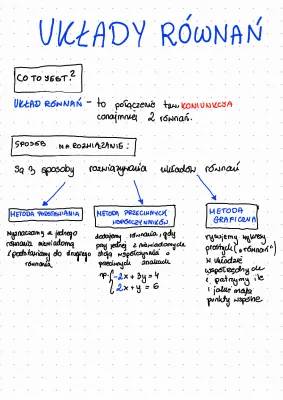 UKŁADY RÓWNAŃ
CO TO JEST?
UKŁAD RÓWNAŃ - to połączenie tzw. KONIUNKCJA
conajmniej 2 równań.
SPOSÓB NA ROZWIĄZANIE:
Są 3 sposoby rozwiązywania układów równań
METODA PODSTAWIANIA
wyznaczamy z jednego
równania niewiadomą
i podstawiamy do drugiego
równania
METODA PRZECIWNYCH
WSPÓŁCZYNNIKÓW
dodajemy równania, gdy
przy jednej z niewiadomych
stoją współczynniki o
przeciwnych znakach
np. {-2x + 3y = 4
{2x + y = 6
METODA
GRAFICZNA
rysujemy wykresy
prostych ("równań")
w układzie
współrzędnych
i patrzymy ile
i jakie mają
punkty wspólne